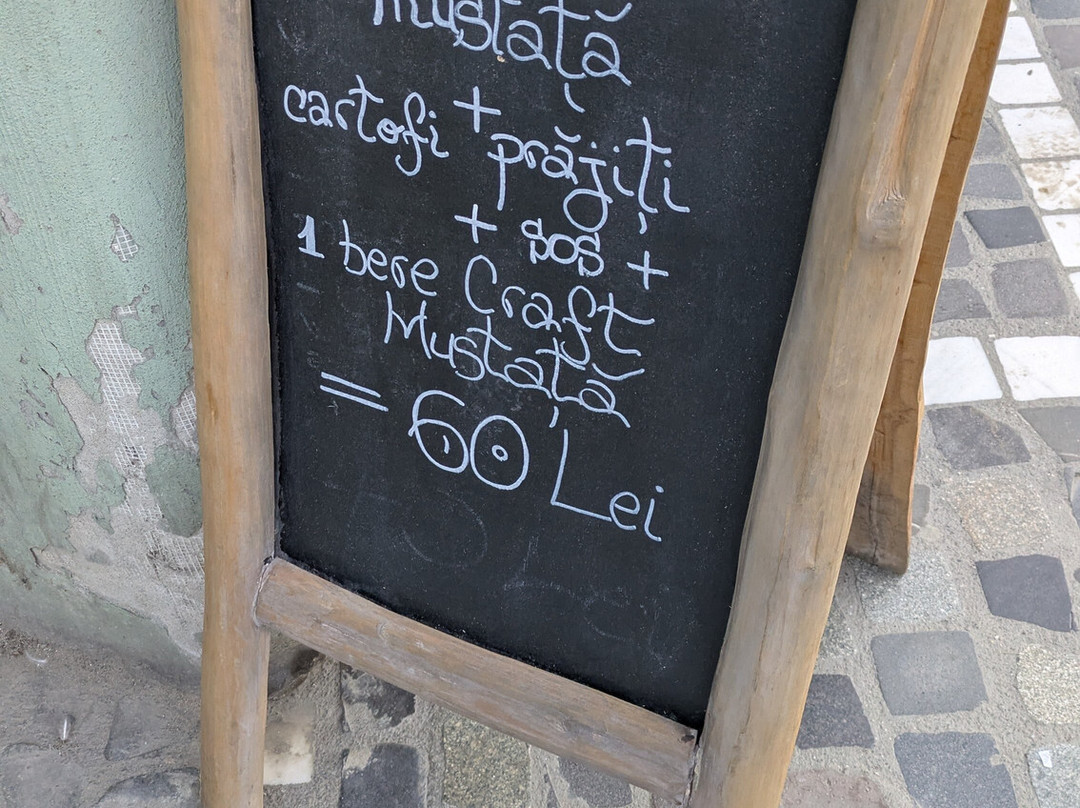 Mustață
+
cartofi prăjiți
+ sos +
1 bere Craft
Mustață
= 60 Lei